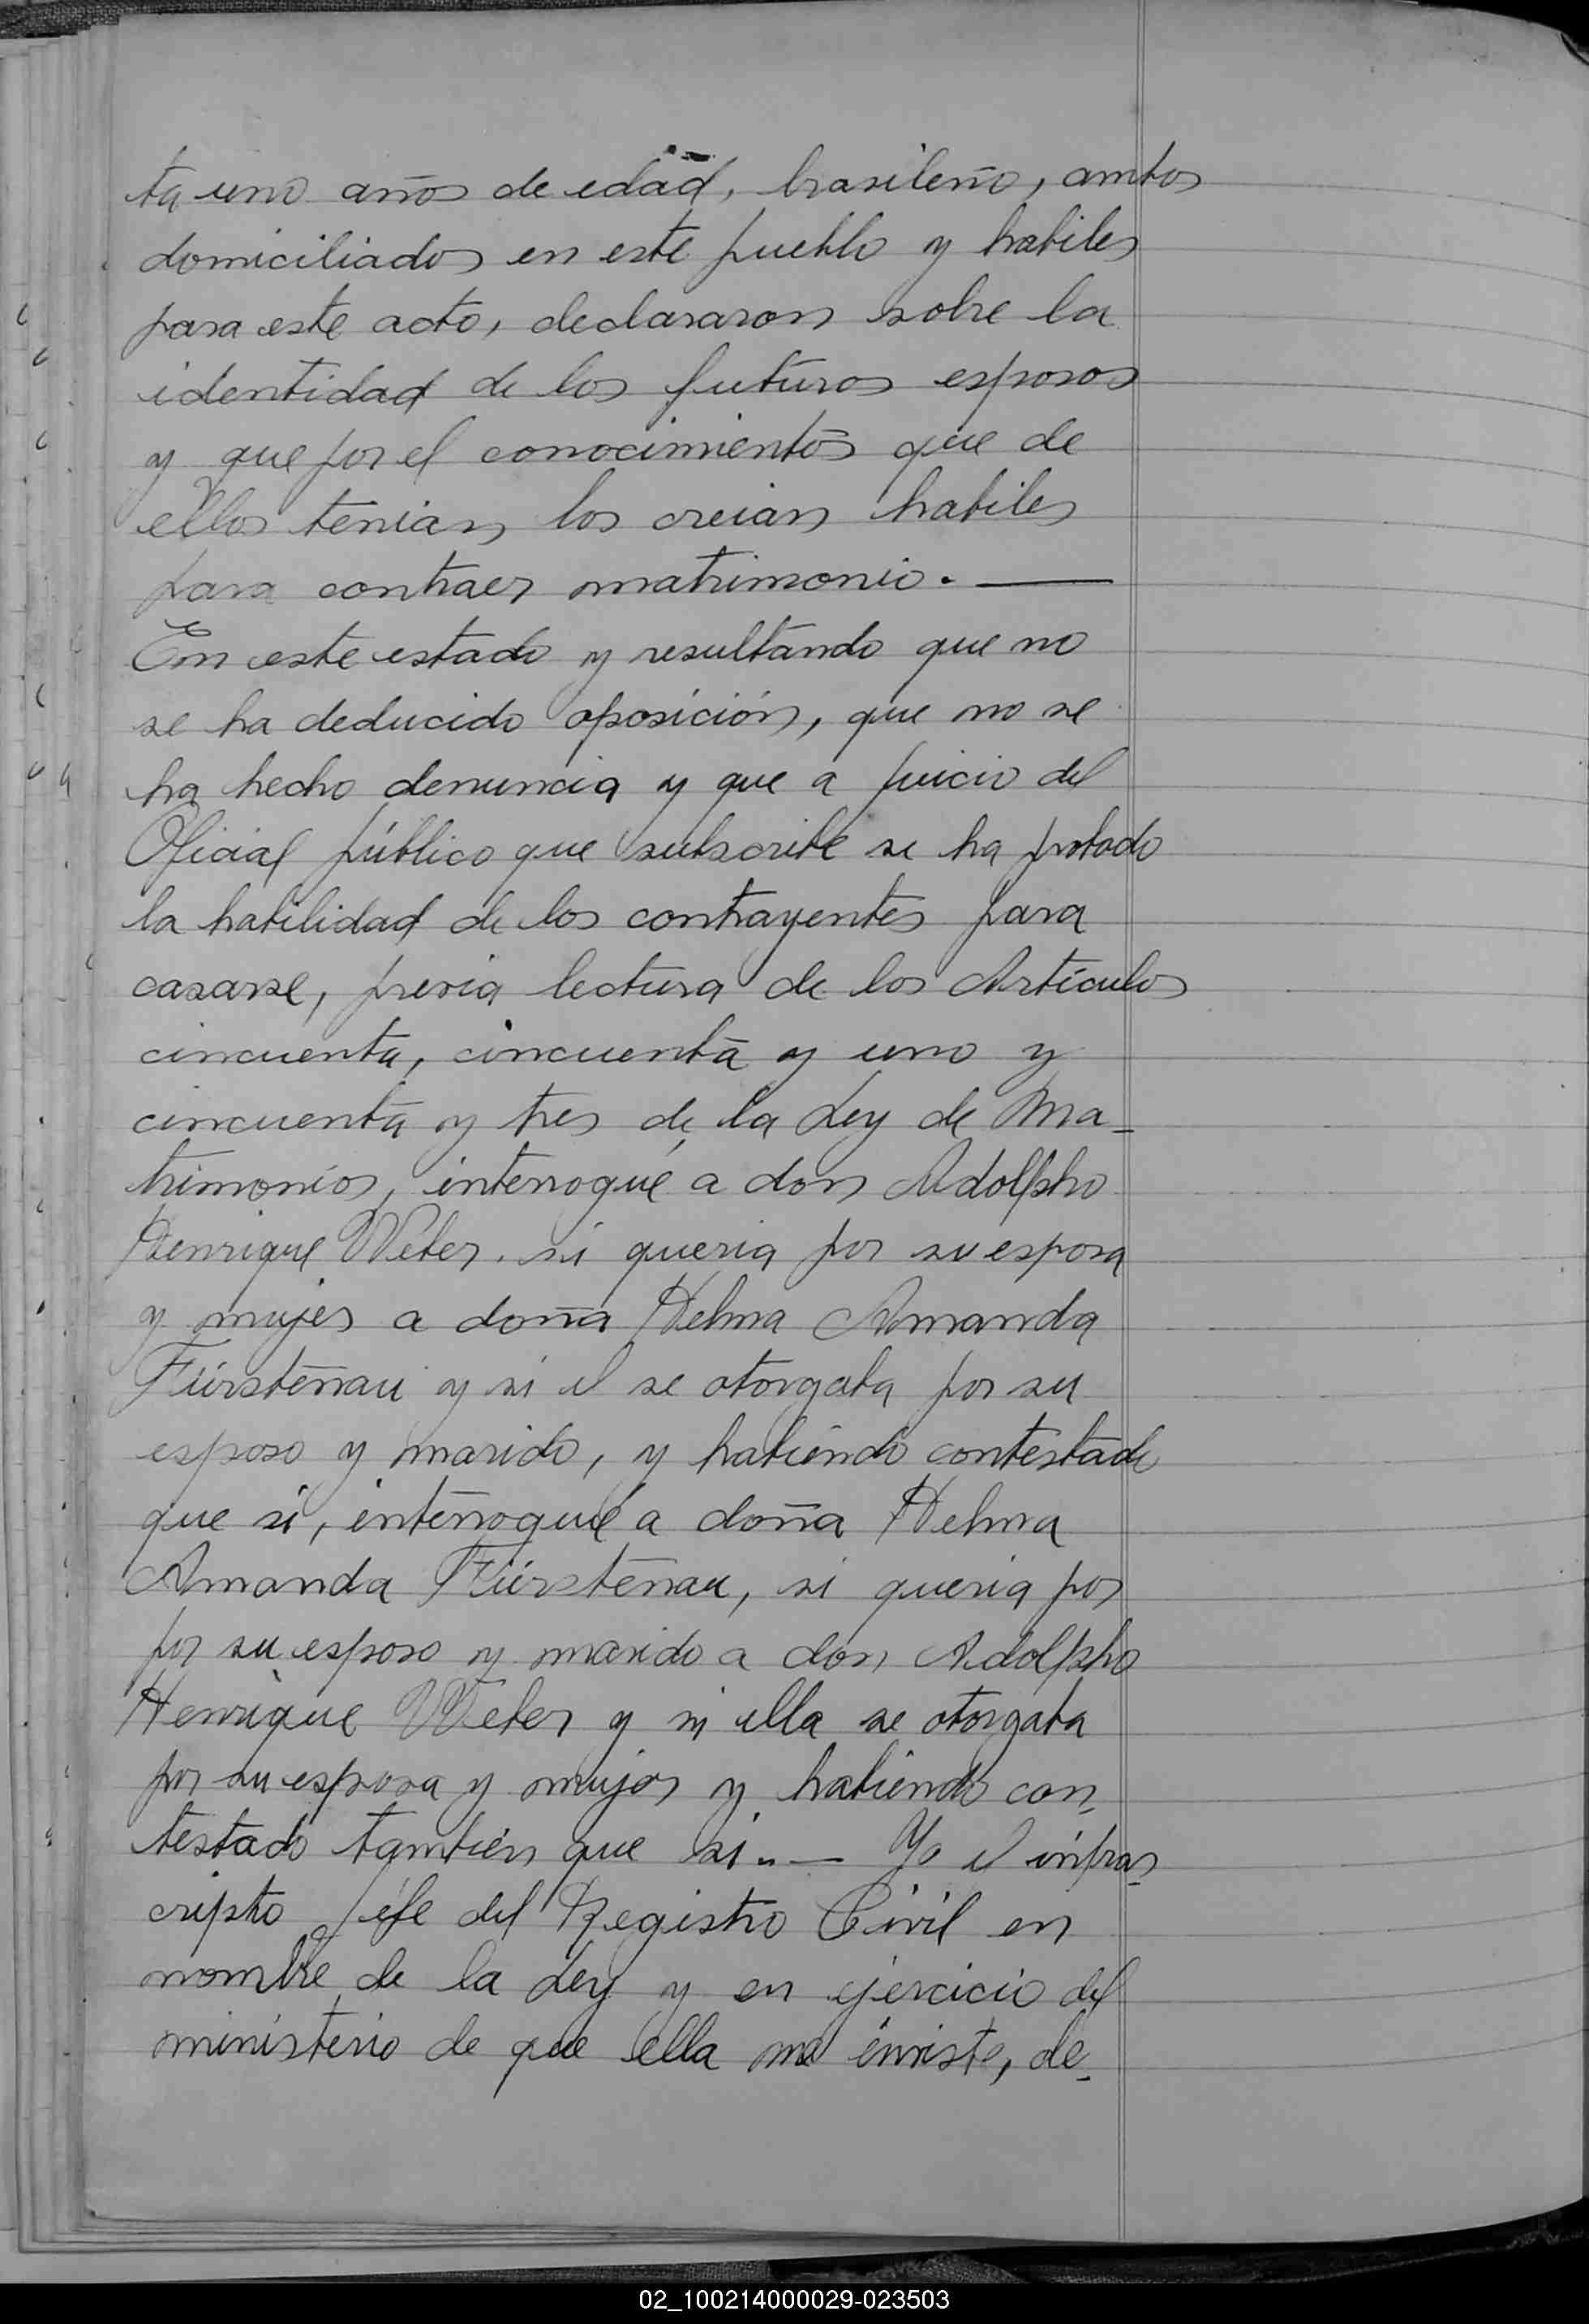 ta uno años de edad, brasileño, ambos
domiciliados en este pueblo y habiles
para este acto, declararon sobre la
identidad de los futuros esposos
y que por el conocimientos que de
ellos tenian los creian habiles
para contraer matrimonio. —
En este estado y resultando que no
se ha deducido oposición, que no se
ha hecho denuncia y que a juicio del
Oficial público que subscribe se ha probado
la habilidad de los contrayentes para
casarse, previa lectura de los Artículos
cincuenta, cincuenta y uno y
cincuenta y tres de la Ley de Ma-
trimonios, interrogué a don Adolpho
Henrique Weber. si queria por su esposa
y mujer a doña Helma Amanda
Fürstenau y si el se otorgaba por su
esposo y marido, y habiendo contestado
que si, interrogué a doña Helma
Amanda Fürstenau, si queria por
por su esposo y marido a don Adolpho
Henrique Weber y si ella se otorgaba
por su esposa y mujer y habiendo con-
testado también que si. — Yo el infras-
cripto Jefe del Registro Civil en
nombre de la Ley y en ejercicio del
ministerio de que ella me inviste, de-
02_100214000029-023503